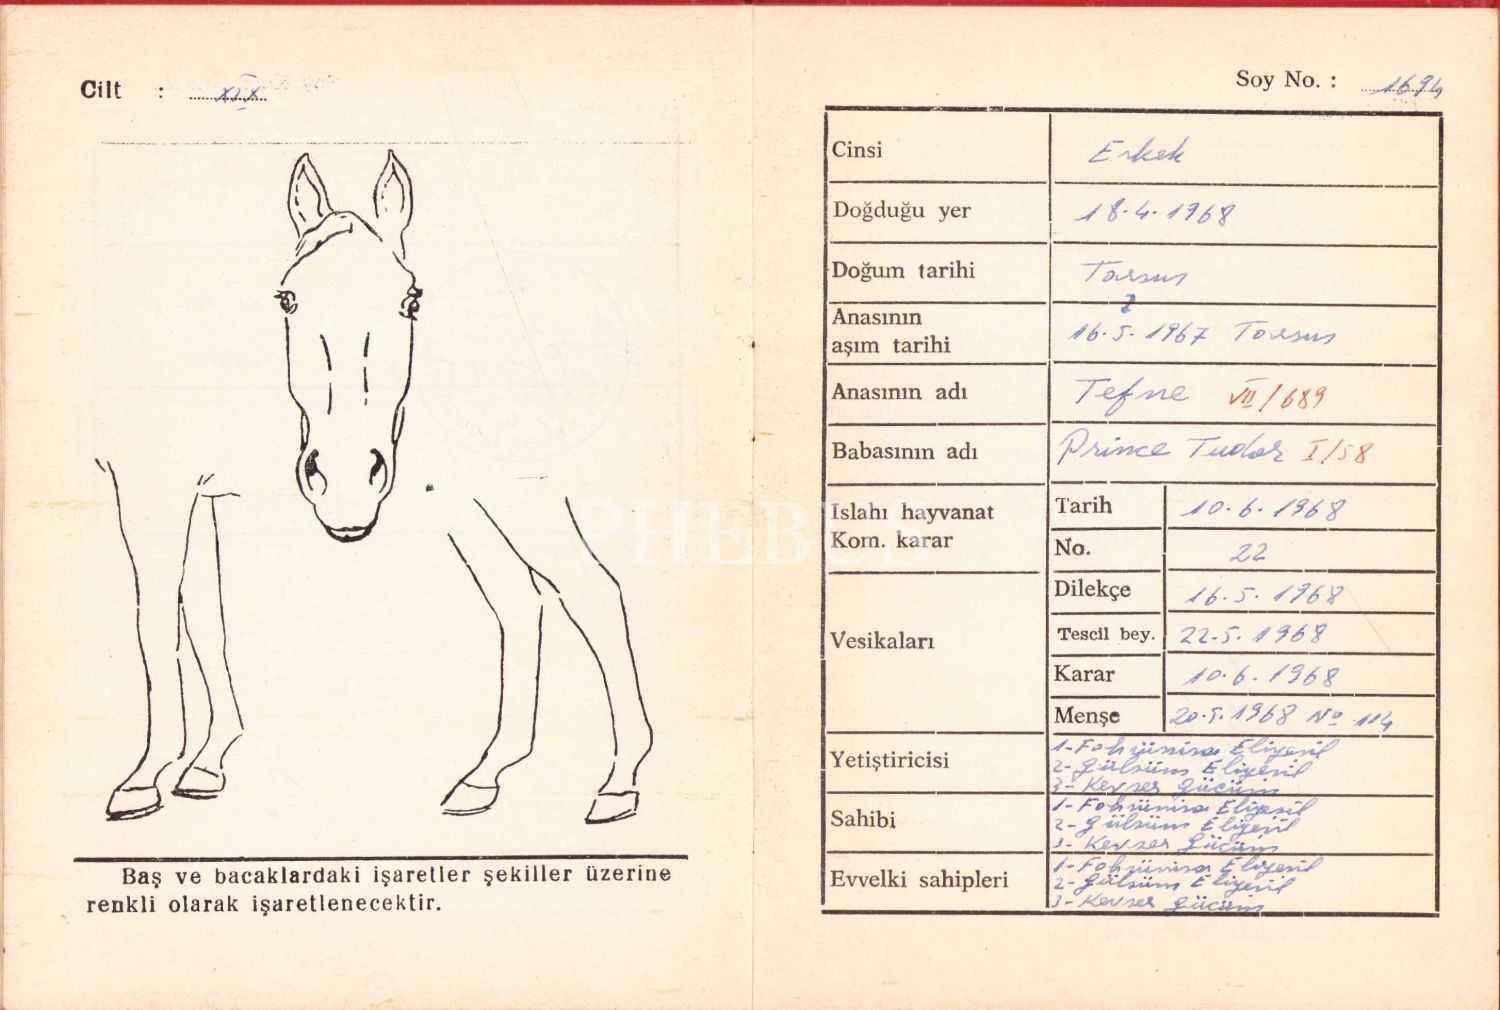 Cilt : XIX
Baş ve bacaklardaki işaretler şekiller üzerine
renkli olarak işaretlenecektir.
Soy No. : 1694
Cinsi Erkek
Doğduğu yer 18.4.1968
Doğum tarihi Tarsus
Anasının
aşım tarihi 16.5.1967 Tarsus
Anasının adı Tefne VII/689
Babasının adı Prince Tudor I/58
Islahı hayvanat
Kom. karar
Tarih 10.6.1968
No. 22
Vesikaları
Dilekçe 16.5.1968
Tescil bey. 22.5.1968
Karar 10.6.1968
Menşe 20.5.1968 No 114
Yetiştiricisi 1- Fahrünisa Eliyeşil
2- Gülsüm Eliyeşil
3- Kevser Gücüm
Sahibi 1- Fahrünisa Eliyeşil
2- Gülsüm Eliyeşil
3- Kevser Gücüm
Evvelki sahipleri 1- Fahrünisa Eliyeşil
2- Gülsüm Eliyeşil
3- Kevser Gücüm
PHEBUS